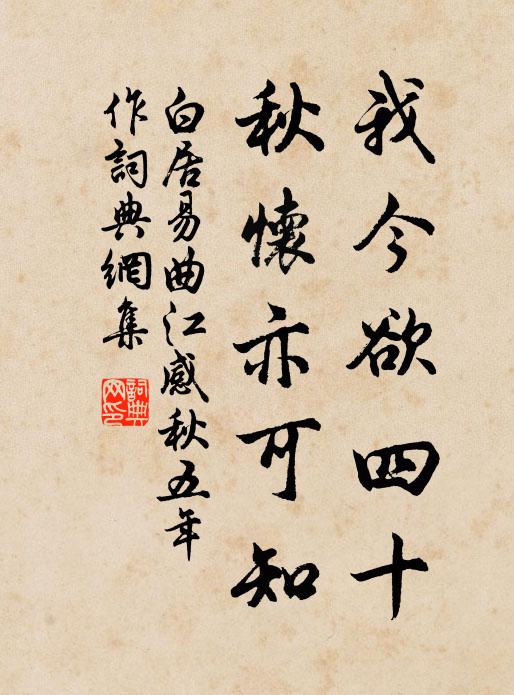 我今欲四十
秋懷亦可知
白居易曲江感秋五年
作詞典網集
詞典
网印